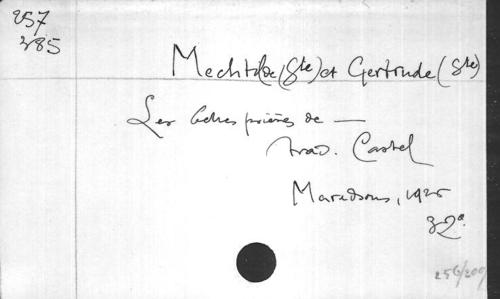 257
385
Mechtilde (Ste) et Gertrude (Ste)
Les belles prières de —
trad. Castel
Maredsous, 1925
32°.
256/209